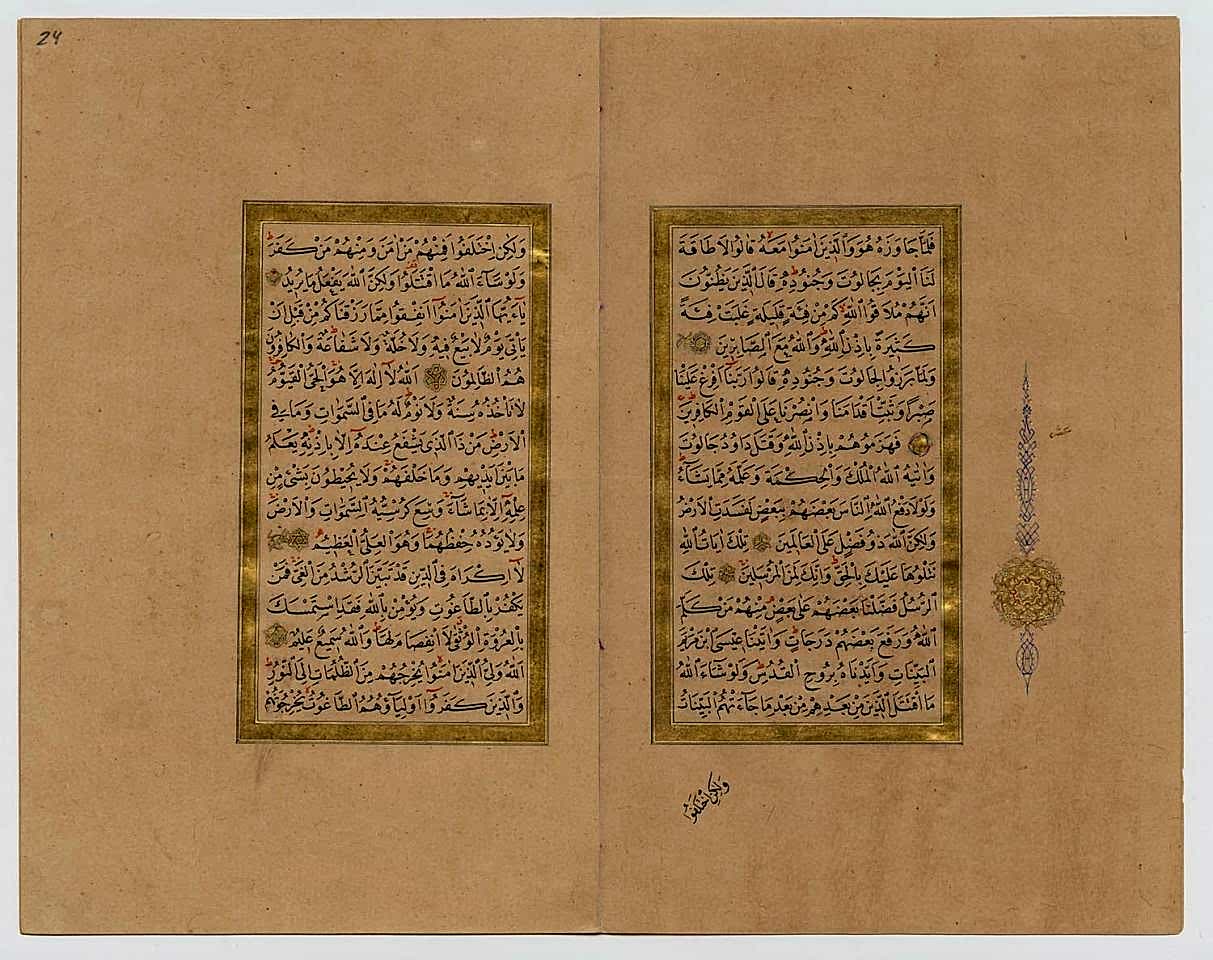 فَلَمَّا جَاوَزَهُ هُوَ وَالَّذِينَ اٰمَنُوا مَعَهُ قَالُوا لَا طَاقَةَ
لَنَا الْيَوْمَ بِجَالُوتَ وَجُنُودِهِ قَالَ الَّذِينَ يَظُنُّونَ
اَنَّهُمْ مُلَاقُوا اللّٰهِ كَمْ مِنْ فِئَةٍ قَلِيلَةٍ غَلَبَتْ فِئَةً
كَثِيرَةً بِاِذْنِ اللّٰهِ وَاللّٰهُ مَعَ الصَّابِرِينَ
وَلَمَّا بَرَزُوا لِجَالُوتَ وَجُنُودِهِ قَالُوا رَبَّنَا اَفْرِغْ عَلَيْنَا
صَبْرًا وَثَبِّتْ اَقْدَامَنَا وَانْصُرْنَا عَلَى الْقَوْمِ الْكَافِرِينَ
فَهَزَمُوهُمْ بِاِذْنِ اللّٰهِ وَقَتَلَ دَاوُدُ جَالُوتَ
وَاٰتٰيهُ اللّٰهُ الْمُلْكَ وَالْحِكْمَةَ وَعَلَّمَهُ مِمَّا يَشَاءُ
وَلَوْلَا دَفْعُ اللّٰهِ النَّاسَ بَعْضَهُمْ بِبَعْضٍ لَفَسَدَتِ الْاَرْضُ
وَلٰكِنَّ اللّٰهَ ذُو فَضْلٍ عَلَى الْعَالَمِينَ تِلْكَ اٰيَاتُ اللّٰهِ
نَتْلُوهَا عَلَيْكَ بِالْحَقِّ وَاِنَّكَ لَمِنَ الْمُرْسَلِينَ تِلْكَ
الرُّسُلُ فَضَّلْنَا بَعْضَهُمْ عَلٰى بَعْضٍ مِنْهُمْ مَنْ كَلَّمَ
اللّٰهُ وَرَفَعَ بَعْضَهُمْ دَرَجَاتٍ وَاٰتَيْنَا عِيسَى ابْنَ مَرْيَمَ
الْبَيِّنَاتِ وَاَيَّدْنَاهُ بِرُوحِ الْقُدُسِ وَلَوْ شَاءَ اللّٰهُ
مَا اقْتَتَلَ الَّذِينَ مِنْ بَعْدِهِمْ مِنْ بَعْدِ مَا جَاءَتْهُمُ الْبَيِّنَاتُ
وَلٰكِنِ اخْتَلَفُوا
24
وَلٰكِنِ اخْتَلَفُوا فَمِنْهُمْ مَنْ اٰمَنَ وَمِنْهُمْ مَنْ كَفَرَ
وَلَوْ شَاءَ اللّٰهُ مَا اقْتَتَلُوا وَلٰكِنَّ اللّٰهَ يَفْعَلُ مَا يُرِيدُ
يَا اَيُّهَا الَّذِينَ اٰمَنُوا اَنْفِقُوا مِمَّا رَزَقْنَاكُمْ مِنْ قَبْلِ اَنْ
يَأْتِيَ يَوْمٌ لَا بَيْعٌ فِيهِ وَلَا خُلَّةٌ وَلَا شَفَاعَةٌ وَالْكَافِرُونَ
هُمُ الظَّالِمُونَ اَللّٰهُ لَا اِلٰهَ اِلَّا هُوَ الْحَيُّ الْقَيُّومُ
لَا تَأْخُذُهُ سِنَةٌ وَلَا نَوْمٌ لَهُ مَا فِي السَّمٰوَاتِ وَمَا فِي
الْاَرْضِ مَنْ ذَا الَّذِي يَشْفَعُ عِنْدَهُ اِلَّا بِاِذْنِهِ يَعْلَمُ
مَا بَيْنَ اَيْدِيهِمْ وَمَا خَلْفَهُمْ وَلَا يُحِيطُونَ بِشَيْءٍ مِنْ
عِلْمِهِ اِلَّا بِمَا شَاءَ وَسِعَ كُرْسِيُّهُ السَّمٰوَاتِ وَالْاَرْضَ
وَلَا يَؤُدُهُ حِفْظُهُمَا وَهُوَ الْعَلِيُّ الْعَظِيمُ
لَا اِكْرَاهَ فِي الدِّينِ قَدْ تَبَيَّنَ الرُّشْدُ مِنَ الْغَيِّ فَمَنْ
يَكْفُرْ بِالطَّاغُوتِ وَيُؤْمِنْ بِاللّٰهِ فَقَدِ اسْتَمْسَكَ
بِالْعُرْوَةِ الْوُثْقٰى لَا انْفِصَامَ لَهَا وَاللّٰهُ سَمِيعٌ عَلِيمٌ
اَللّٰهُ وَلِيُّ الَّذِينَ اٰمَنُوا يُخْرِجُهُمْ مِنَ الظُّلُمَاتِ اِلَى النُّورِ
وَالَّذِينَ كَفَرُوا اَوْلِيَاؤُهُمُ الطَّاغُوتُ يُخْرِجُونَهُمْ